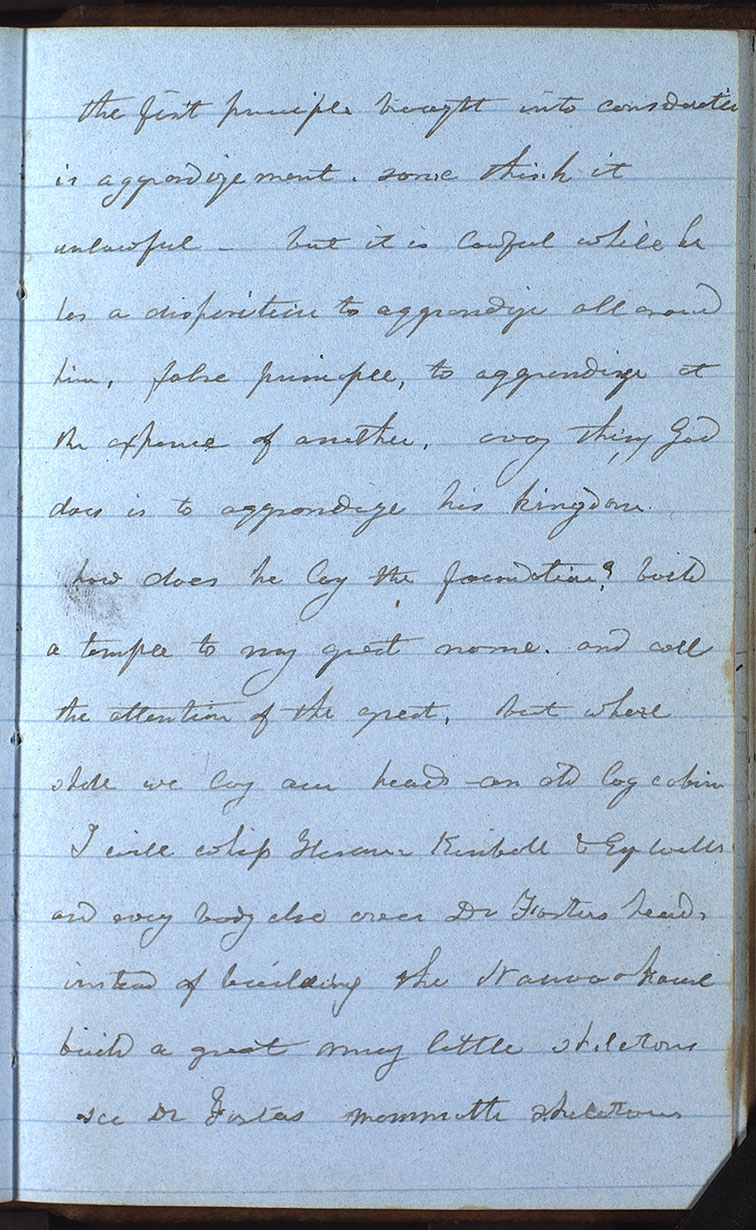 the first principle brought into consideratin
is aggrandizement. some think it
unlawful - but it is lawful while he
has a disposition to aggrandize all around
him, false principle, to aggrandize at
the expence of another. every thing God
does is to aggrandize his kingdom
how does he lay the foundation? build
a temple to my great name. and call
the attention of the great, but where
shall we lay our heads - an old log cabin
I will whip Hiram Kimball &
and every body else over Dr Fosters heads
instead of building the Nauvoo House
build a great many little skeletons
see Dr Fosters mammoth skeletons